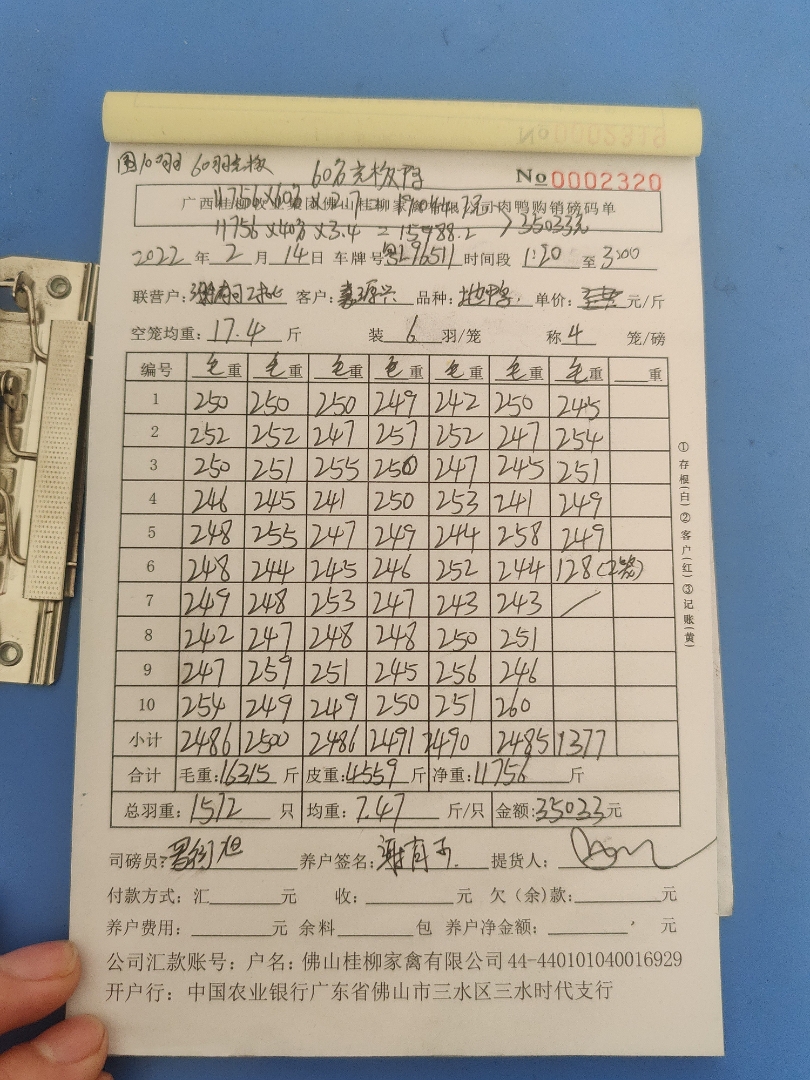 60羽无极
60%无极障
No 0002320
广西桂柳牧业集团佛山桂柳家禽有限公司肉鸭购销磅码单
11756×60%×2.7=19044.7元
11756×40%×3.4=15988.2 > 35033元
2022年2月14日 车牌号粤L96511 时间段1:20至3:00
联营户: 客户:嘉源兴 品种: 单价: 元/斤
空笼均重:17.4斤 装6羽/笼 称4笼/磅
编号 毛重 毛重 毛重 毛重 毛重 毛重 毛重 重
1 250 250 250 249 242 250 245
2 252 252 247 257 252 247 254
3 250 251 255 250 247 245 251
4 246 245 241 250 253 241 249
5 248 255 247 249 244 258 249
6 248 244 245 246 252 244 128(2笼)
7 249 248 253 247 243 243 /
8 242 247 248 248 250 251
9 247 259 251 245 256 246
10 254 249 249 250 251 260
小计 2486 2500 2486 2491 2490 2485 1377
合计 毛重:16315斤 皮重:4559斤 净重:11756斤
总羽重:1572只 均重:7.47斤/只 金额:35033元
司磅员: 养户签名:谢有 提货人:
付款方式:汇 元 收: 元 欠(余)款: 元
养户费用: 元 余料 包 养户净金额: 元
公司汇款账号:户名:佛山桂柳家禽有限公司44-440101040016929
开户行:中国农业银行广东省佛山市三水区三水时代支行
①存根(白)②客户(红)③记账(黄)